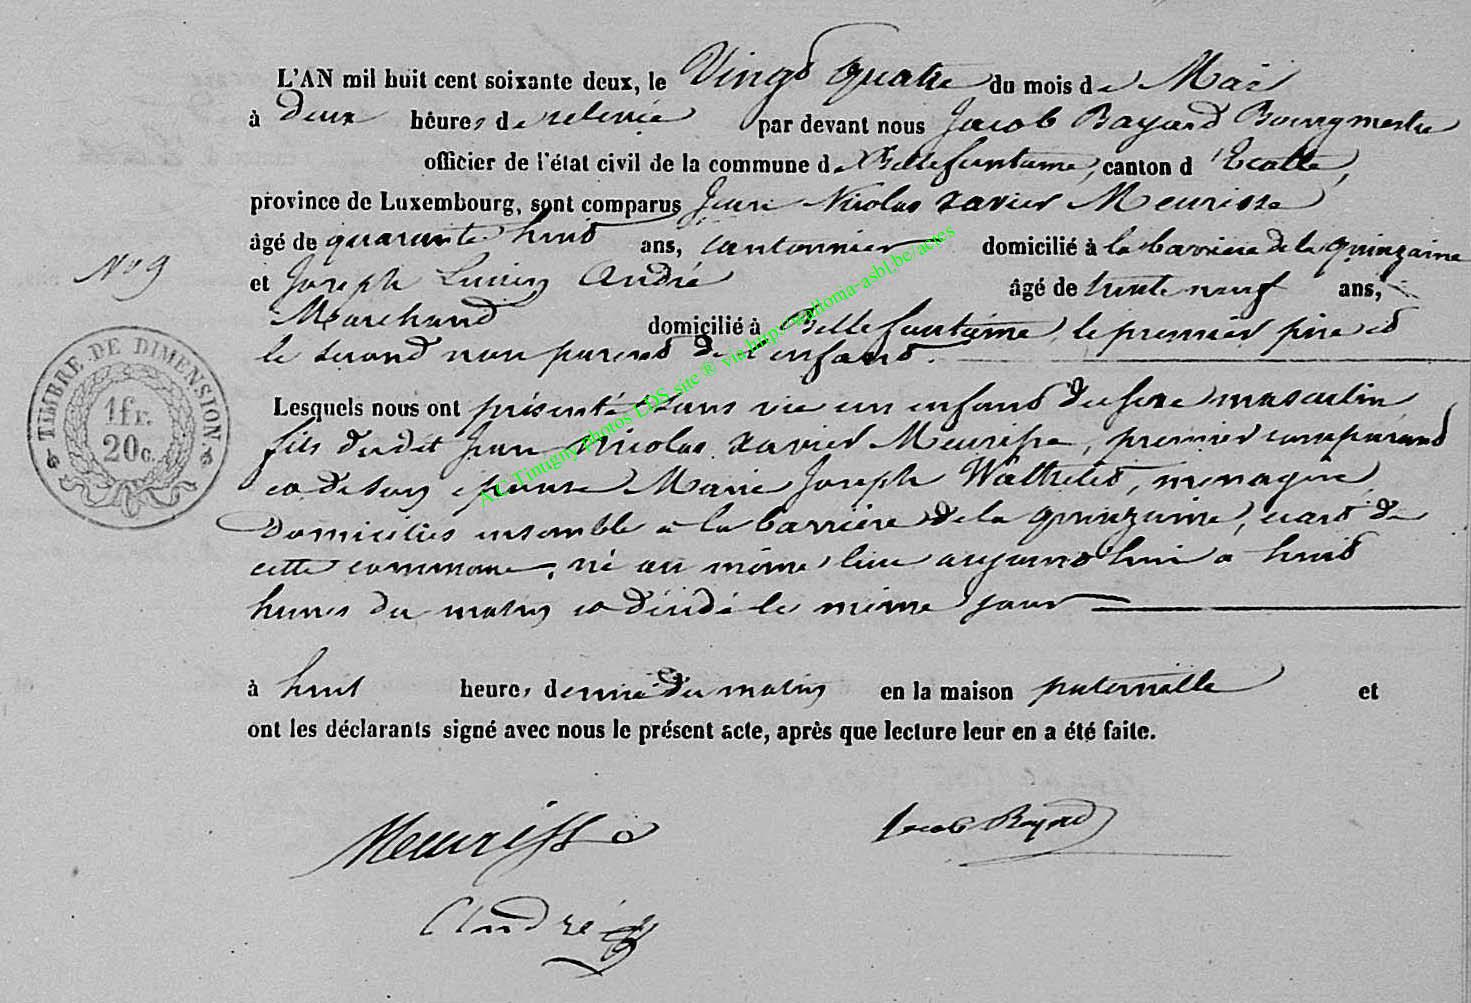 L'AN mil huit cent soixante deux, le Vingt quatre du mois de Mai
à deux heures de relevée par devant nous Jacob Bayard Bourgmestre
officier de l'état civil de la commune de Bellefontaine, canton d'Etalle,
province de Luxembourg, sont comparus Jean Nicolas Xavier Meurisse
âgé de quarante huit ans, cantonnier domicilié à la barrière de la quinzaine
N° 9
et Joseph Lucien André âgé de trente neuf ans,
Marchand domicilié à Bellefontaine, le premier père et
le second non parent de l'enfant.
TIMBRE DE DIMENSION.
1 fr.
20 c.
Lesquels nous ont présenté sans vie un enfant du sexe masculin
fils dudit Jean Nicolas Xavier Meurisse, premier comparant
et de son épouse Marie Joseph Wathelet, ménagère,
domiciliés ensemble à la barrière de la quinzaine, écart de
cette commune, né au même lieu aujourd'hui à huit
heures du matin et décédé le même jour
à huit heures demie du matin en la maison paternelle et
ont les déclarants signé avec nous le présent acte, après que lecture leur en a été faite.
Meurisse
Jacob Bayard
André
A.C. Tintigny photos LDS_site ® via http://wallonia-asbl.be/actes